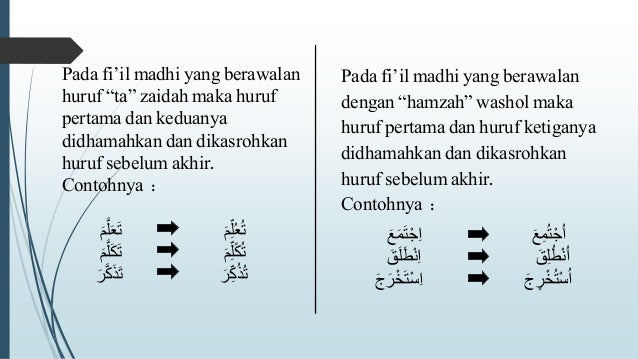 Pada fi’il madhi yang berawalan
huruf “ta” zaidah maka huruf
pertama dan keduanya
didhamahkan dan dikasrohkan
huruf sebelum akhir.
Contohnya :
تَعَلَّمَ تُعُلِّمَ
تَكَلَّمَ تُكُلِّمَ
تَذَكَّرَ تُذُكِّرَ
Pada fi’il madhi yang berawalan
dengan “hamzah” washol maka
huruf pertama dan huruf ketiganya
didhamahkan dan dikasrohkan
huruf sebelum akhir.
Contohnya :
اِجْتَمَعَ اُجْتُمِعَ
اِنْطَلَقَ اُنْطُلِقَ
اِسْتَخْرَجَ اُسْتُخْرِجَ